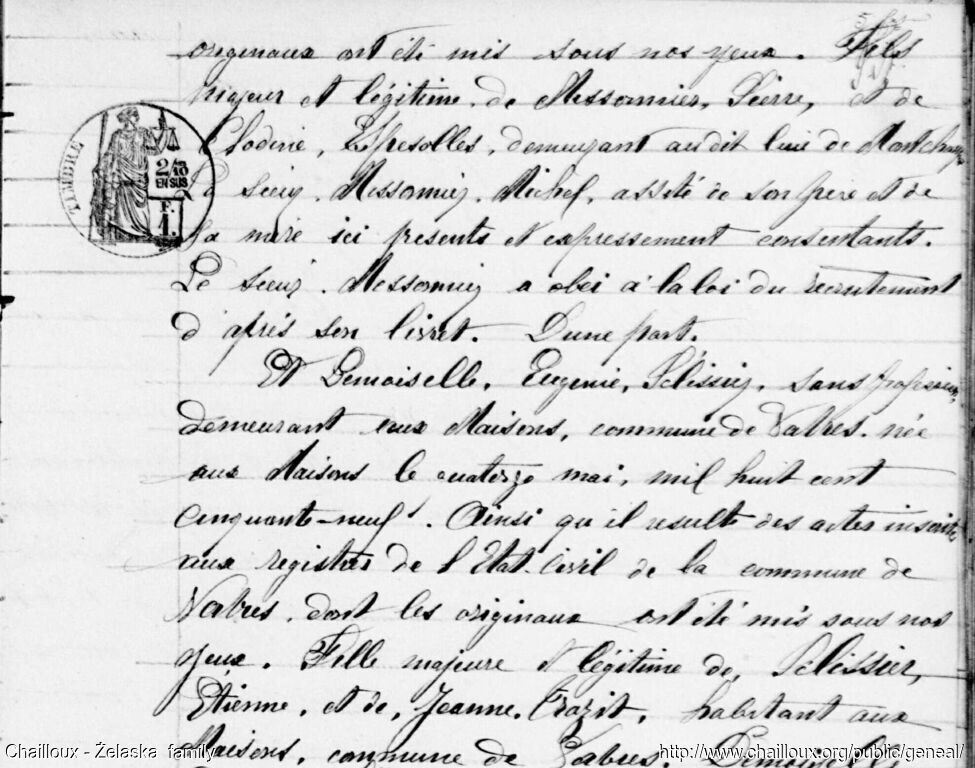 originaux ont été mis sous nos yeux. Fils
majeur et légitime, de Messonnier, Pierre, et de
Clodine, Espesolles, demeurant audit lieu de
Le sieur, Messonnier, Michel, assité de son père et de
sa mère ici presents et expressement consentants.
Le sieur, Messonnier a obéi à la loi du recrutement
d'après son livret. D'une part.
Et Demoiselle, Eugenie, Pélissier, sans profession,
demeurant aux Maisons, commune de Vabres, née
aux Maisons le quatorze mai, mil huit cent
cinquante-neuf. Ainsi qu'il resulte des actes inscrits
aux registres de l'Etat-Civil de la commune de
Vabres, dont les originaux ont été mis sous nos
yeux. Fille majeure et légitime de, Pélissier,
Etienne, et de, Jeanne, habitant aux
Maisons, commune de Vabres.
TIMBRE
2/10
EN SUS
F.
1.
Chailloux - Żelaska family
http://www.chailloux.org/public/geneal/